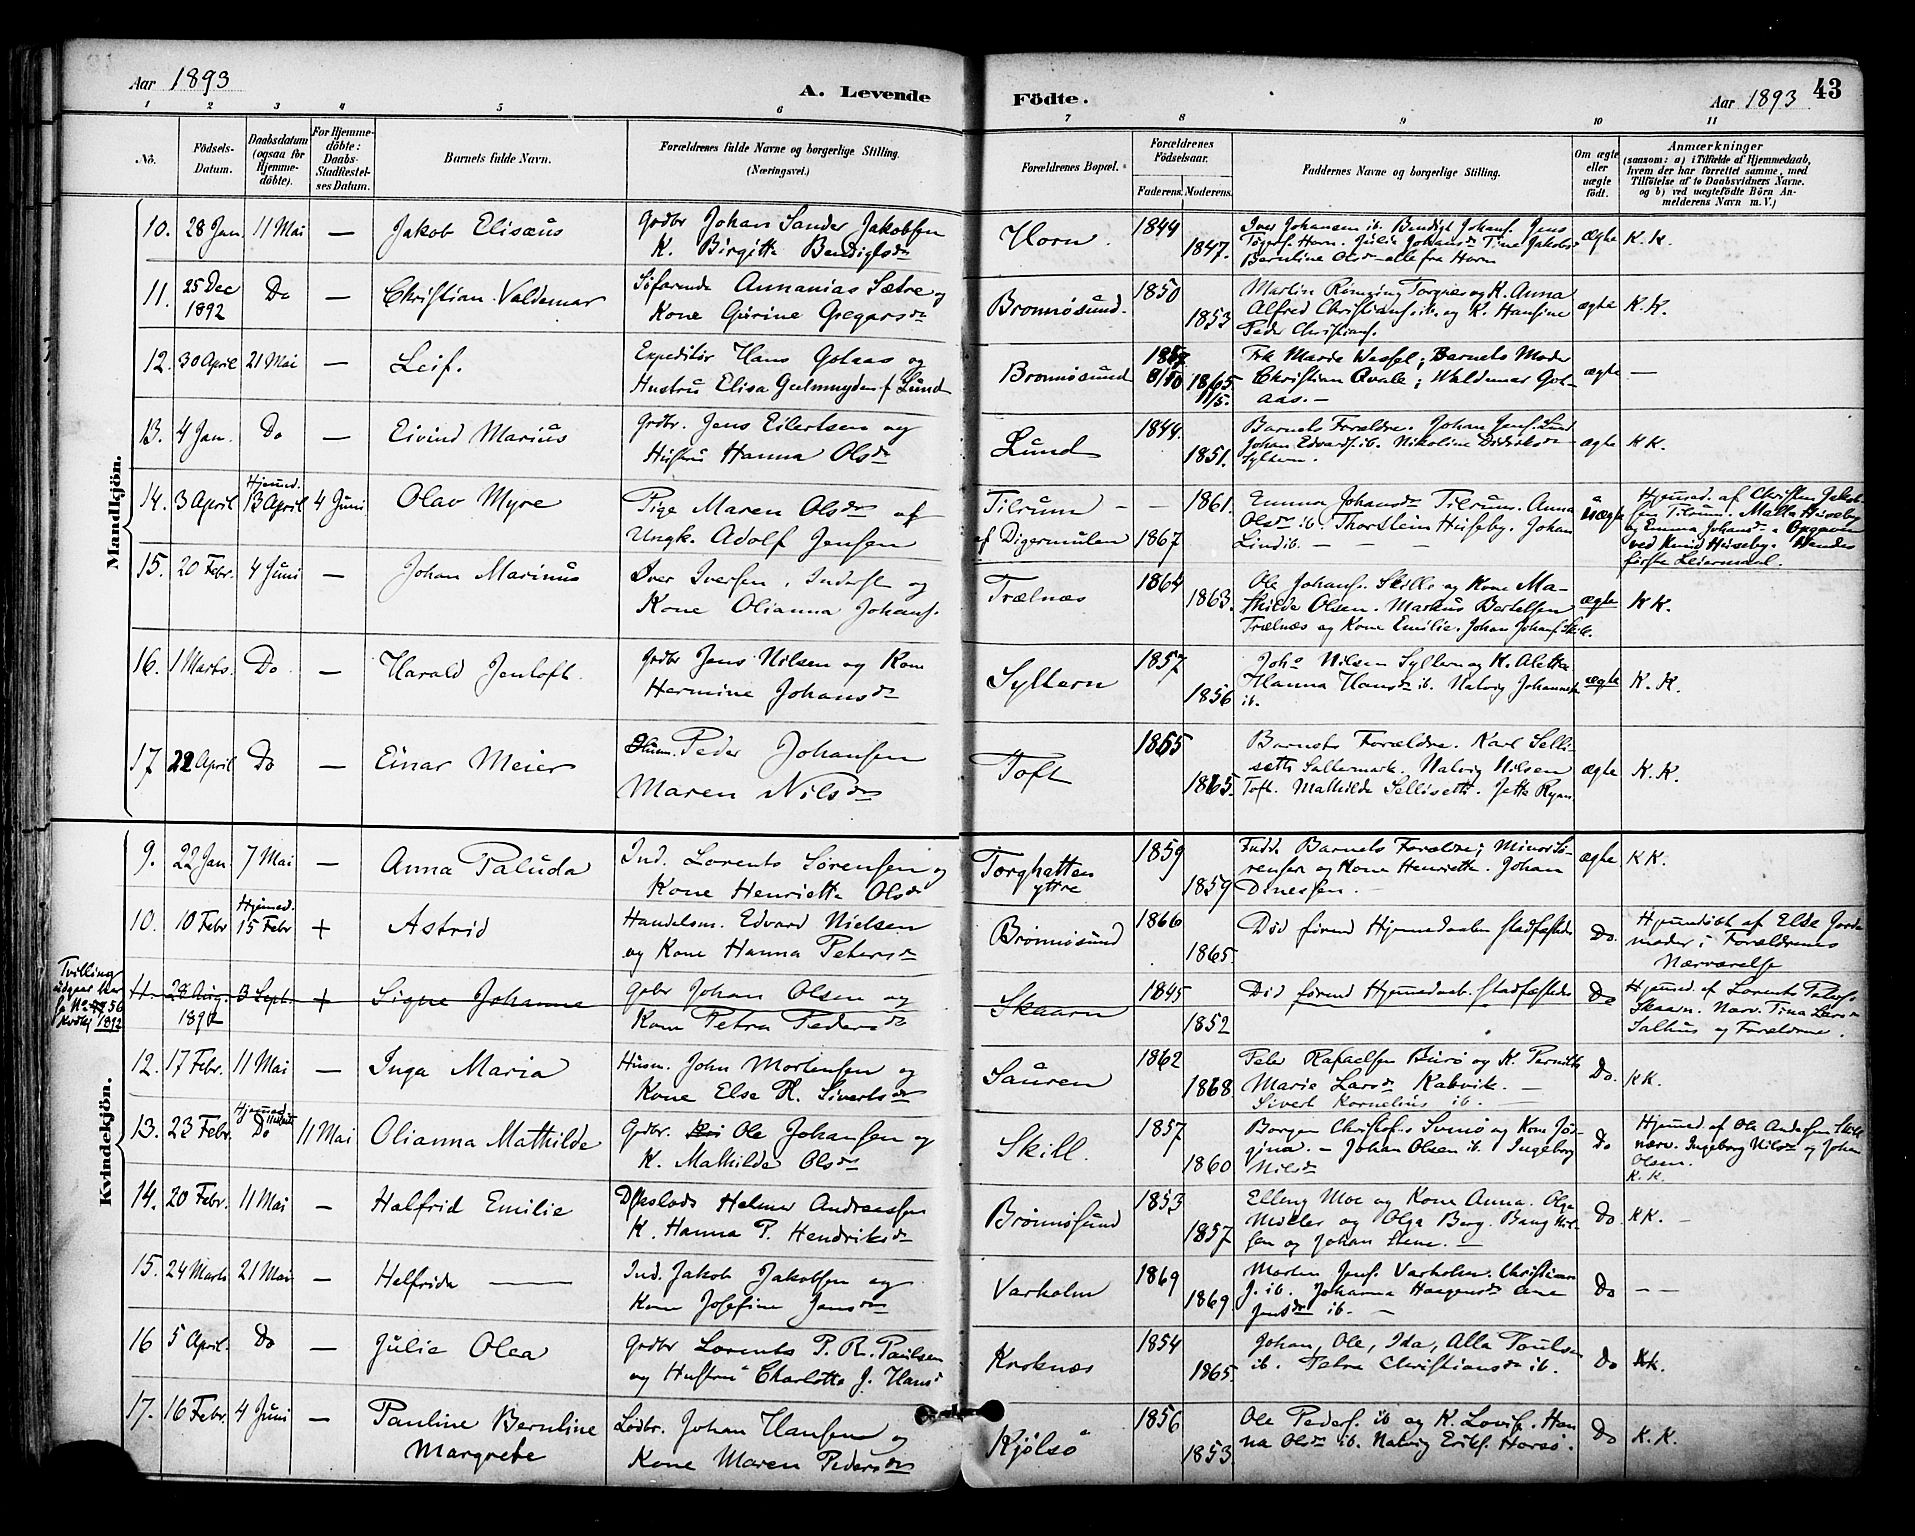 Aar 1893
A. Levende
Födte.
Aar 1893
43
1 2 3 4 5 6 7 8 9 10 11
No.
Födsels-
Datum.
Daabsdatum
(ogsaa for
Hjemme-
döbte).
For Hjemme-
döbte:
Daabs-
Stadfæstel-
ses Datum.
Barnets fulde Navn.
Forældrenes fulde Navne og borgerlige Stilling.
(Næringsvei.)
Forældrenes Bopæl.
Forældrenes
Födselsaar.
Faderens. Moderens.
Faddernes Navne og borgerlige Stilling.
Om ægte
eller
uægte
födt.
Anmærkninger
(saasom: a) i Tilfælde af Hjemmedaab,
hvem der har forrettet samme, med
Tilföielse af to Daabsvidners Navne.
og b) ved uægtefödte Börn An-
melderens Navn m. V.)
Mandkjön.
10. 28 Jan. 11 Mai — Jakob Elisæus
Grdbr Johan Sander Jakobsen
K. Birgitte Bendigtsdr
Horn. 1844
1847.
Berntine Olsdr alle fra Horn
ægte K. K.
11. 25 Dec
1892
Do — Christian Valdemar
Söfarende Annanias Sætre og
Kone Gurine Gregarsdr
Bronnösund. 1850
1853
Torgnæs og K. Anna
Alfred Christians. ib. og K. Hansine
Peder Christians.
ægte K. K.
12. 30 April 21 Mai — Leif.
Expeditör Hans Gotaas og
Hustru Elisa Gulmmyden f. Lund
Bronnösund
1865
11/5.
Frk Marda Wessel; Barnets Moder
Christian Qvale; Waldemar Got-
aas. —
ægte —
13. 4 Jan. Do — Eivind Marius
Grdbr. Jens Eilertsen og
Hustru Hanna Olsdr
Lund 1844.
1851.
Barnets Forældre. Johan Jens. Lund
Johan Edvards. ib. Nikoline Didriksdr
Syltern.
ægte K K.
14. 3 April Hjemmed.
13 April 4 Juni Olav Myre
Pige Maren Olsdr af
Ungk. Adolf Jensen
Tilrum — — 1861.
af Digermulen 1867
Emma Johansdr Tilrum. Anna
Olsdr ib. Thorstein Huseby. Johan
Lind ib. — — —
uægte
Hjemmed. af Christen Jakob-
sen Tilrum. Malla Huseby
og Emma Johansdr. Opgaven
ved Knud Huseby. Hendes
förste Leiermaal.
15. 20 Febr. 4 Juni — Johan Marinus
Iver Iversen, Inderst og
Kone Olianna Johans.
Trælnæs 1864
1863.
Ole Johans. Skille og Kone Ma-
thilde Olsen. Markus Bertelsen
Trælnæs og Kone Emilie. Johan Johans. Skil.
ægte K K.
16. 1 Marts. Do — Harald Jentoft.
Grdbr Jens Nilsen og Kone
Hermine Johansdr
Syltern 1857
1856
Johs Nilsen Syltern og K. Alette
Hanna Hansdr ib. Natvig Johannes
ib.
ægte K. K.
17. 22 April Do — Einar Meier
Husm. Peder Johansen
Maren Nilsdr
Toft 1865
1865.
Barnets Forældre. Karl Selli-
sett Saltermark. Natvig Nilsen
Toft. Mathilde Sellisett. Jette
ægte K. K.
Kvindekjön.
9. 22 Jan. 7 Mai — Anna Paluda
Ind. Lorents Sörensen og
Kone Henriette Olsdr
Torghatten
yttre
1859
1859
Fadd. Barnets Forældre; Minor Sö-
rensen og Kone Henriette. Johan
Dinessen. —
ægte K K.
10. 10 Febr Hjemmed.
15 Febr + Astrid
Handelsm. Edvard Nielsen
og Kone Hanna Petersdr
Brönnösund 1866
1865.
Död förend Hjemmedaaben stadfæstedes
Do. Hjemmedöbt af Else Jorde-
moder i Forældrenes
Nærværelse
Tvilling
udgaar her
se No 56
Kvkj 1892
11. 28 Aug.
1892
3 Sept. + Signe Johanne
Grbr Johan Olsen og
Kone Petra Pedersdr
Skaarn 1845
1852
Död förend Hjemmedaab. stadfæstedes
Do Hjemmed. af Lorents Peters.
Skaarn. Nærv. Tina Larsdr
Salhus og Forældrene.
12. 17 Febr. 11 Mai — Inga Maria
Husm. John Mortensen og
Kone Else H. Sivertsdr
Sauren 1862
1868
Peder Rafaelsen Burö og K. Pernille
Marie Larsdr Kabvik. —
Sivert Kornelius ib. —
Do. K K.
13. 23 Febr. Hjemmed
Do 11 Mai Olianna Mathilde
Grdbr. Ole Johansen og
K. Mathilde Olsdr
Skill. 1857
1860
Borger Christofs. Svinö og Kone Jör-
gina. — Johan Olsen ib. Ingeborg
Nilsdr
Do Hjemmed. af Ole Andersen Skill
nærv. Ingeborg Nilsdr og Johan
Olsen.
K. K.
14. 20 Febr. 11 Mai — Halfrid Emilie
Helmer Andreassen
K. Hanna P. Hendriksdr
Brönnösund 1853
1857
Elling Moe og Kone Anna. Olga
Möller og Olga Berg. Bang Nil-
sen og Johan Stene. —
Do. K K. —
15. 24 Marts 21 Mai — Helfride —
Ind. Jakob Jakobsen og
Kone Josefine Jensdr
Varholm 1869
1869
Morten Jens. Varholm. Christian
J. ib. Johanna Haagensdr Ane
Jensdr ib. —
Do — —
16 5 April. Do — Julie Olea
Grdbr Lorents P. R. Paulsen
og Hustru Charlotte J. Hansd
Kroknæs 1854
1865.
Johan, Ole, Ida, Alla Paulsen
ib. Petra Christiansdr ib.
Do KK.
17. 16 Febr. 4 Juni — Pauline Berntine
Margrete
Lödbr. Johan Hansen og
Kone Maren Pedersdr
Kjölsö 1856
1853
Ole Peders. ib og K. Lovis. Han-
na Olsdr ib. Natvig Eriks. Horsö.
Do K. K.